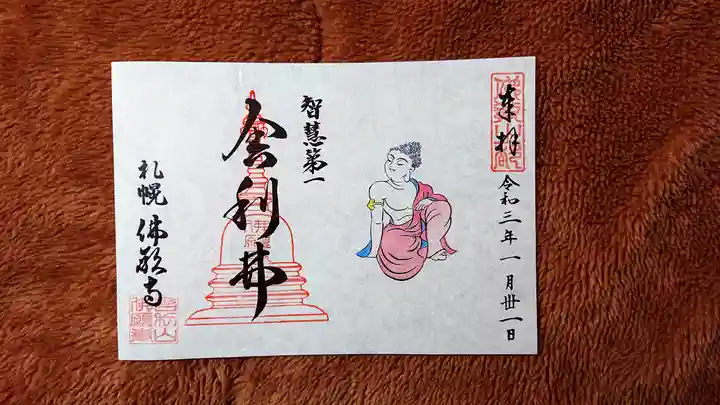 奉拝
令和三年一月丗一日
智慧第一
舎利弗
札幌 佛願寺